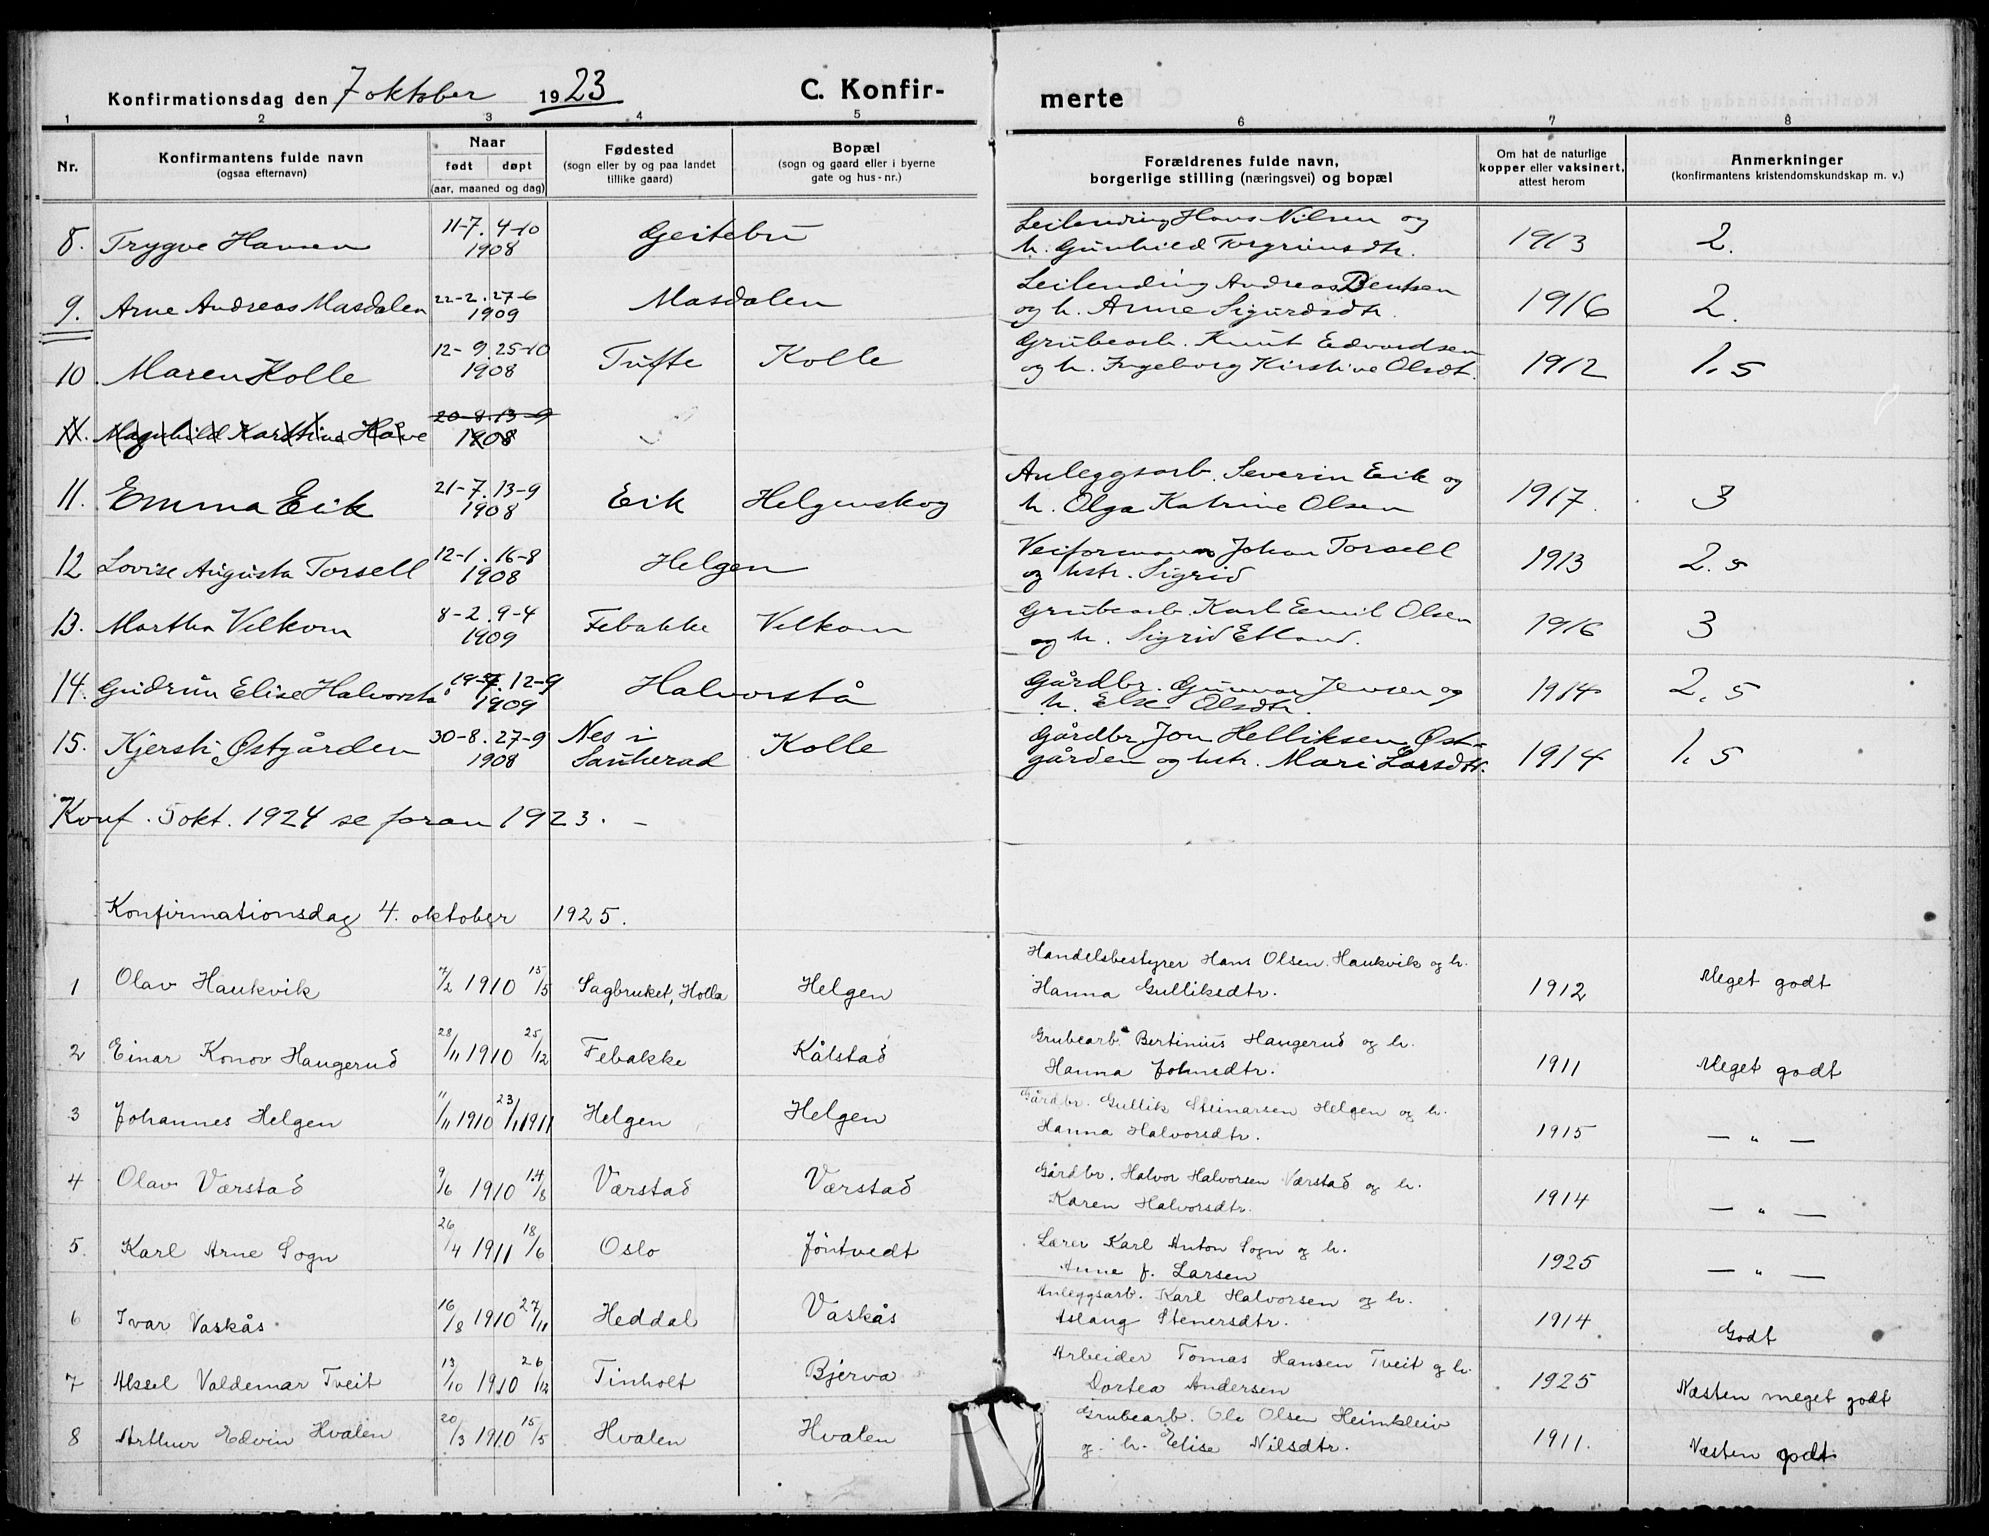 Konfirmationsdag den 7 oktober 1923 C. Konfir-
merte
1 2 3 4 5 6 7 8
Nr. Konfirmantens fulde navn (ogsaa efternavn) Naar født døpt (aar, maaned og dag) Fødested (sogn eller by og paa landet tillike gaard) Bopæl (sogn og gaard eller i byerne gate og hus-nr.) Forældrenes fulde navn, borgerlige stilling (næringsvei) og bopæl Om hat de naturlige kopper eller vaksinert, attest herom Anmerkninger (konfirmantens kristendomskundskap m. v.)
8. Trygve Hansen 11-7. 4-10 1908 Geitebu Leilending Hans Nilsen og
h. Gunhild Torgrimsdtr. 1913 2.
9. Arne Andreas Masdalen 22-2. 27-6 1909 Masdalen Leilending Andreas Bentsen
og h. Anne Sigurdsdtr. 1916 2.
10. Maren Kolle 12-9. 25-10 1908 Tufte Kolle Grubearb. Knut Edvardsen
og h. Ingeborg Kirstine Olsdt. 1912 1,5
20-8. 13-9 1908
11. Emma Eik 21-7. 13-9 1908 Eik Helgenskog Anleggsarb. Severin Eik og
h. Olga Katrine Olsen 1917. 3
12 Lovise Augusta Torsell 12-1. 16-8 1908 Helgen Veiformann Johan Torsell
og hstr. Sigrid 1913 2.5
13. Martha Velkom 8-2. 9-4 1909 Febakke Velkom Grubearb. Karl Eemil Olsen
og h. Sigrid Etland. 1916 3
14. Gudrun Elise Halvorstå 12-9 1909 Halvorstå Gårdbr. Gunnar Jensen og
h. Else Olsdtr. 1914 2,5
15. Kjersti Østgården 30-8. 27-9 1908 Nes i Sauherad Kolle Gårdbr. Jon Helliksen Øst-
gården og hstr. Mari Larsdtr. 1914 1,5
Konf. 5 okt. 1924 se foran 1923. -
Konfirmationsdag 4. oktober 1925.
1 Olav Haukvik 7/2 1910 15/5 Sagbruket, Holla Helgen Handelsbestyrer Hans Olsen Haukvik og h.
Hanna Gulliksdtr. 1912 Meget godt
2 Einar Konov Haugerud 28/11 1910 25/12 Febakke Kålstad Grubearb. Bertinius Haugerud og h.
Hanna Johnsdtr. 1911 Meget godt
3 Johannes Helgen 11/11 1910 23/1 1911 Helgen Helgen Gårdbr. Gullik Steinarsen Helgen og h.
Hanna Halvorsdtr. 1915 — " —
4 Olav Værstad 9/6 1910 14/8 Værstad Værstad Gårdbr. Halvor Halvorsen Værstad og h.
Karen Halvorsdtr. 1914 — " —
5. Karl Arne Sogn 26/4 1911 18/6 Oslo Jøntvedt Lærer Karl Anton Sogn og h.
Anne J. Larsen 1925 — " —
6 Ivar Vaskås 16/8 1910 27/11 Heddal Vaskås Anleggsarb. Karl Halvorsen og h.
Aslaug Stenersdtr. 1914 Godt
7 Aksel Valdemar Tveit 13/10 1910 26/12 Tinholt Bjerva Arbeider Tomas Hansen Tveit og h.
Dortea Andersen 1925 Næsten meget godt
8 Arthur Edvin Hvalen 20/3 1910 15/5 Hvalen Hvalen Grubearb. Ole Olsen Heimkleiv
og h. Elise Nilsdtr. 1911. Næsten godt